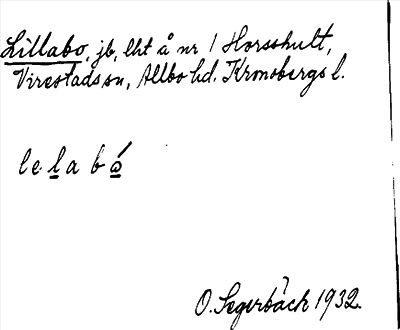 Lillabo, jb, lht å nr 1 Horsshult,
Virestads sn, Allbo hd. Kronobergs l.
le l̲a b á̲
O. Segerbäck 1932.